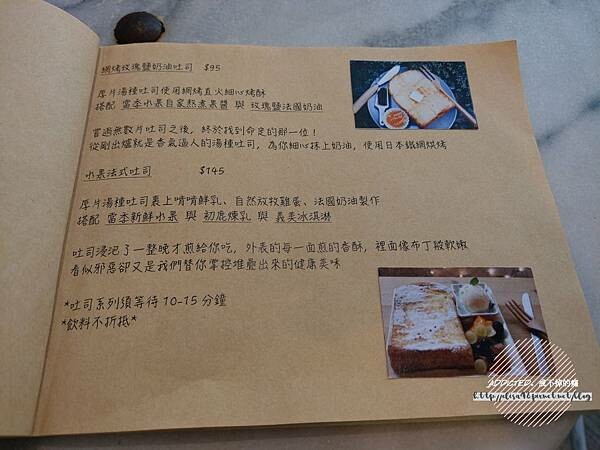 網烤玫瑰鹽奶油吐司 $95
厚片湯種吐司使用網烤直火細心烤酥
搭配 當季水果自家熬煮果醬 與 玫瑰鹽法國奶油
嘗過無數片吐司之後，終於找到命定的那一位！
從剛出爐就是香氣逼人的湯種吐司，為你細心抹上奶油，使用日本鐵網烘烤
水果法式吐司 $145
厚片湯種吐司裹上啃啃鮮乳、自然放牧雞蛋、法國奶油製作
搭配 當季新鮮水果 與 初鹿煉乳 與 義美冰淇淋
吐司浸泡了一整晚才煎給你吃，外表的每一面煎的香酥，裡面像布丁般軟嫩
看似邪惡卻又是我們替你掌控堆疊出來的健康美味
*吐司系列須等待 10-15 分鐘
*飲料不折抵*
ADDICTED。戒不掉的癮